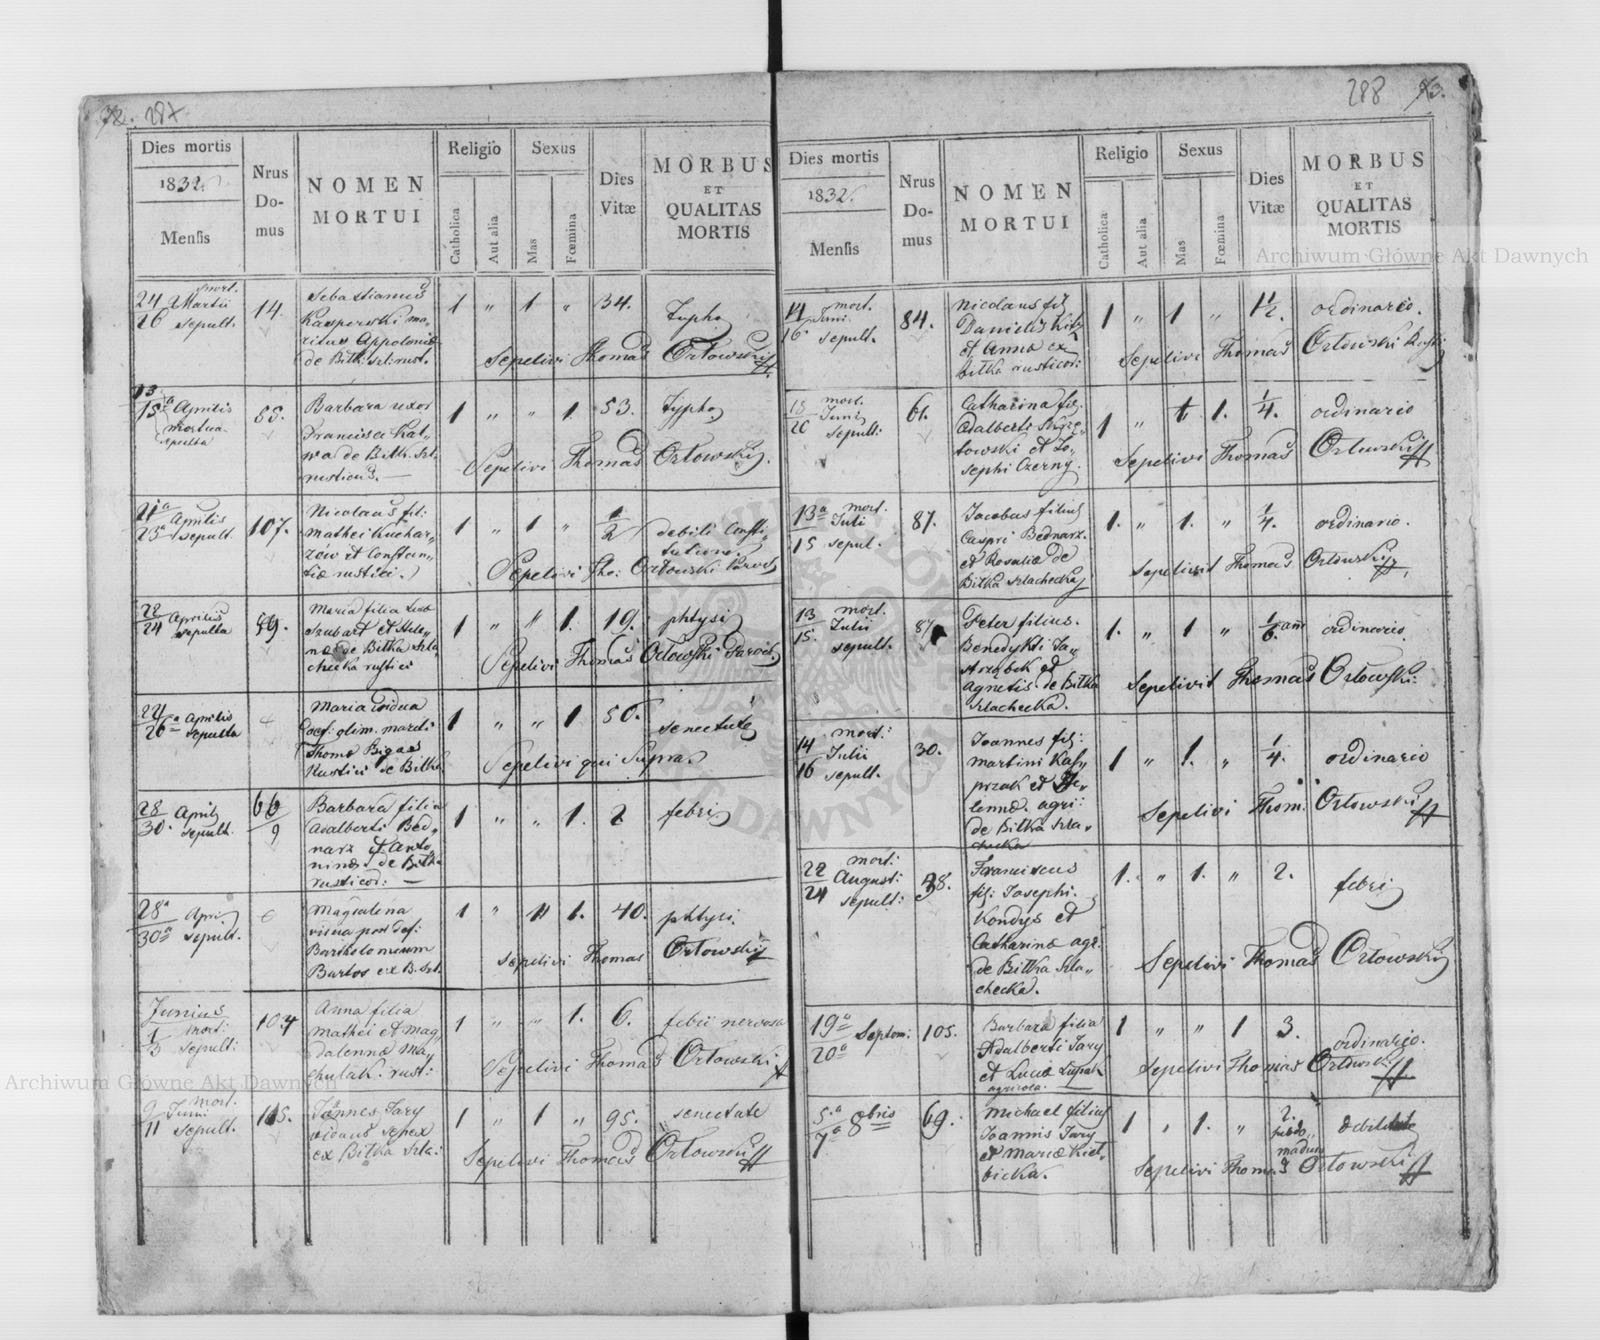 287
Dies mortis
1832
Mensis
Nrus
Do-
mus
NOMEN
MORTUI
Religio
Catholica
Aut alia
Sexus
Mas
Fœmina
Dies
Vitæ
MORBUS
ET
QUALITAS
MORTIS
24 Martii mort.
26 sepult.
14.
Sebastianus
Kasperski ma-
ritus Appoloniæ
de Bitk. szl. rust.
1 " 1 " 34.
Typho
Sepelivi Thomas Orłowski
13
15ª Aprilis
mortua
sepulta
85.
Barbara uxor
Francisci Kal-
wa de Bitk. Szl.
rusticus.
1 " " 1. 53.
typho
Sepelivi Thomas Orłowski
21ª Aprilis
23ª sepult.
107.
Nicolaus fil:
Mathei Kuchar-
zów et Constan-
tiæ rustici.
1 " 1 " 1/2
debili Consti-
tutione.
Sepelivi Tho: Orłowski Paroch
22 Aprilis
24 sepulta
59.
Maria filia
Szubart et Hele-
næ de Bitka Szla-
checka rustici
1 " " 1. 19.
phtysi
Sepelivi Thomas Orłowski Paroch.
24 Aprilis
26ª sepulta
Maria vidua
def: olim. mariti
Thomæ Bigas
Rustici de Bitka
1 " " 1. 50.
senectute
Sepelivi qui Supra
28 April
30. sepult.
66
9
Barbara filia
Adalberti Bed-
narz et Anto-
ninæ de Bitka
rusticor:
1 " " 1. 2
febri
28ª Apri
30ª sepult.
Magdalena
vidua post def:
Bartholomeum
Bartos ex B. Szl.
1 " " 1. 40.
phtysi.
Sepelivi Thomas Orłowski
Junius
1 mort:
3 sepult:
104
Anna filia
Mathei et Mag-
dalennæ May
chulak. rust:
1 " " 1. 6.
febri nervosa
Sepelivi Thomas Orłowski
9 Junii mort.
11 sepult.
115.
Joannes Jary
viduus senex
ex Bitka Szla:
1 " 1 " 95.
senectute
Sepelivi Thomas Orłowski
288
Dies mortis
1832.
Mensis
Nrus
Do-
mus
NOMEN
MORTUI
Religio
Catholica
Aut alia
Sexus
Mas
Fœmina
Dies
Vitæ
MORBUS
ET
QUALITAS
MORTIS
14 mort.
Juni.
16 sepult.
84.
Nicolaus fil.
Danielis
et Annæ ex
Bitka rusticor:
1 " 1 " 1 1/2.
ordinario.
Sepelivi Thomas Orłowski
18 mort.
Juni
20 sepult:
61.
Catharina fil.
Adalberti Skrze-
towski et Jo-
sephi Czerny.
1 " 1. 1/4.
ordinario
Sepelivi Thomas Orłowski
13ª mort.
Juli
15 sepul.
87.
Jacobus filius
Caspri Bednarz.
et Rosaliæ de
Bitka szlachecka
1. " 1. " 1/4.
ordinario.
Sepelivit Thomas Orłowski
13 mort.
Julii
15. sepult.
87
Peter filius.
Benedykti Ja-
strzębik et
Agnetis de Bitka
Szlachecka.
1. " 1 " 1/6. ann
ordinario.
Sepelivit Thomas Orłowski.
14 mort:
Julii
16 sepult.
30.
Joannes fil:
Martini Kas-
przak et He-
lennæ. agri:
de Bitka Szla-
checka
1 " 1. " 1/4.
ordinario
Sepelivi Thom: Orłowski
22 mort:
August:
24 sepult:
38.
Franciscus
fil: Josephi.
Kondys et
Catharinæ agr:
de Bitka Szla-
checka.
1. " 1. " 2.
febri
Sepelivi Thomas Orłowski
19ª Septem:
20ª
105.
Barbara filia
Adalberti Jary
et Luciæ Lupak
agricola.
1 " " 1 3.
ordinario.
Sepelivi Thomas Orłowski
5ª 8bris
7ª
69.
Michael filius
Joannis Jary
et Mariæ Kieł-
bicka.
1 , 1. " 2.
debilitate
Sepelivi Thomas Orłowski
Archiwum Główne Akt Dawnych
Archiwum Główne Akt Dawnych